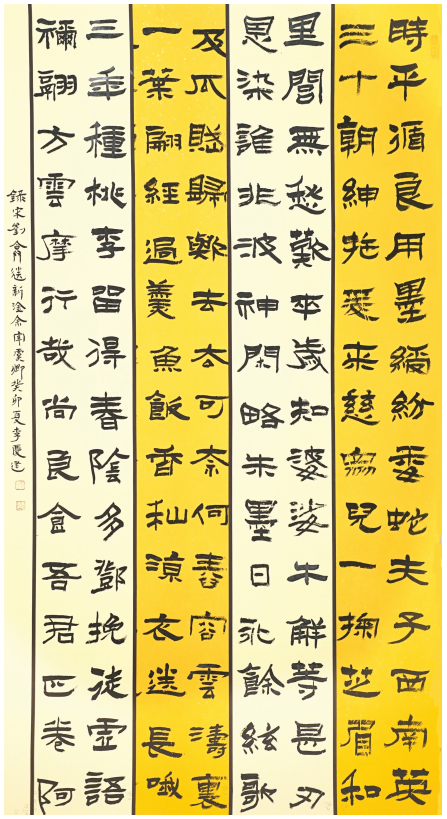 時平循良用墨綬紛委蛇夫子西南英
三十朝紳拖爰來慈鰥兒一掬芝眉和
里閭無愁歎卒歲知婆娑牛解等是刃
思染誰非波神閑略朱墨日永餘絃歌
及瓜賦歸歟去去可奈何舂容雲濤裏
一葉翩經過羹魚飯香秈涼衣迷長哦
三年種桃李留得春陰多鄧挽徒虛語
禰翮方雲摩行哉尚良食吾君正卷阿
錄宋劉翕送新淦余宰虞卿癸卯夏李